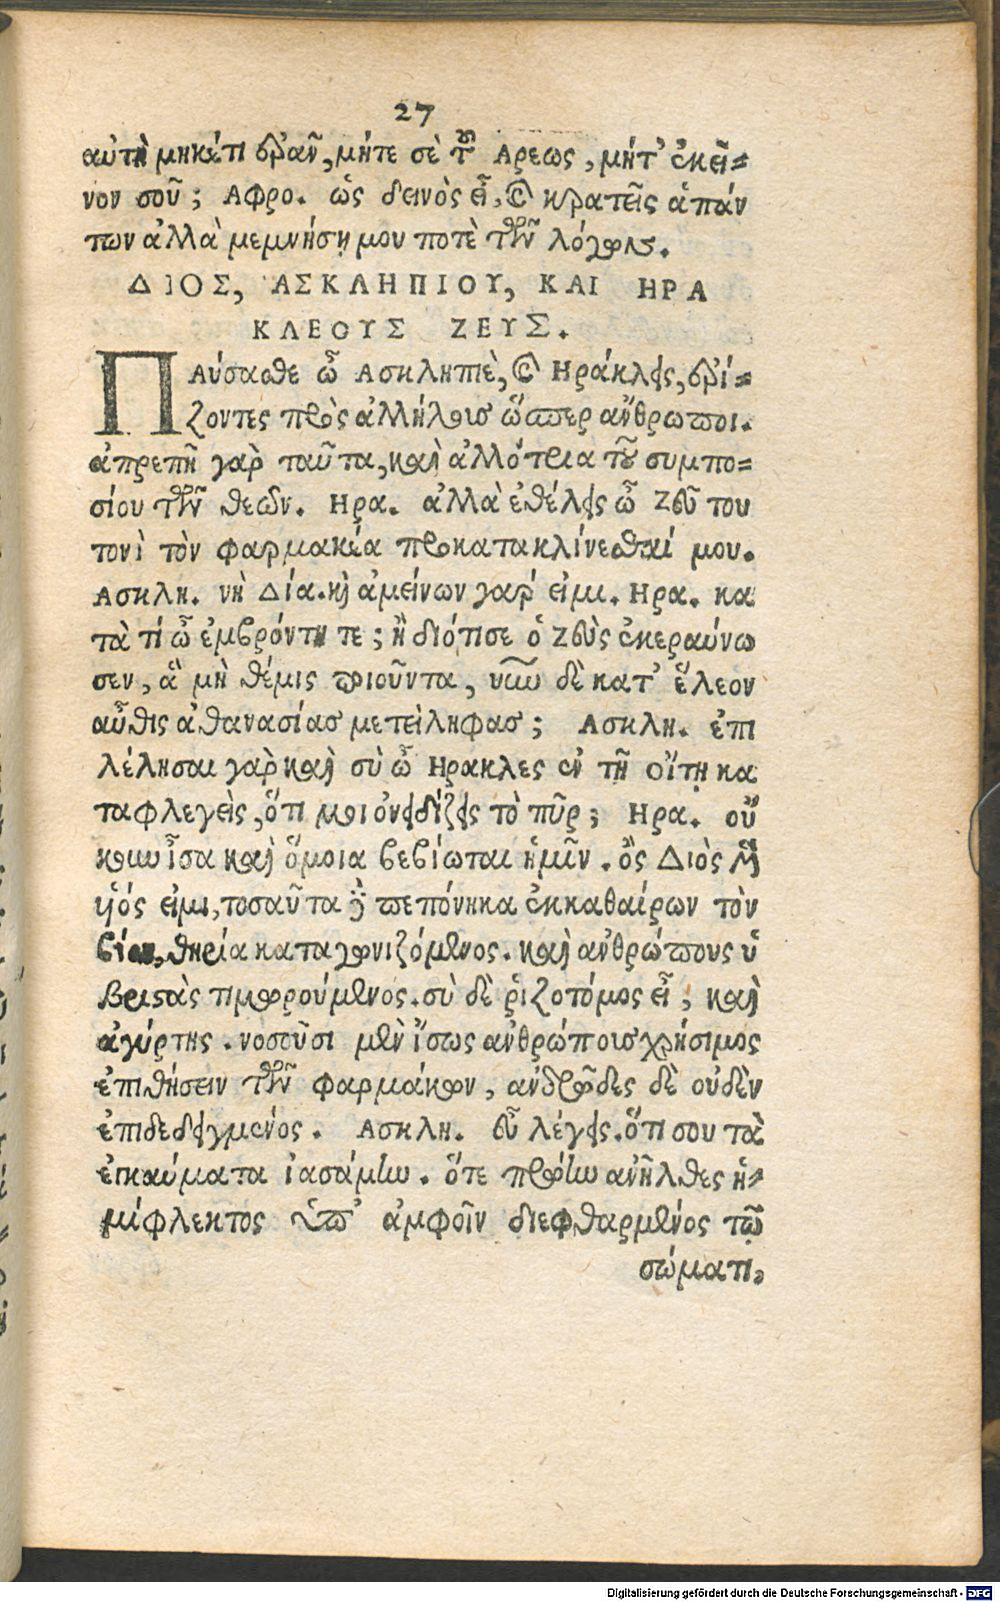 27
αὐτὴ μηκέτι ἐρᾶν, μήτε σὲ τοῦ Αρεως, μήτ' ἐκεῖ=
νον σοῦ; Αφρο. ὡς δεινὸς εἶ, καὶ κρατεῖς ἁπάν
των ἀλλὰ μεμνήσῃ μου ποτὲ τῶν λόγων.
ΔΙΟΣ, ΑΣΚΛΗΠΙΟΥ, ΚΑΙ ΗΡΑ
ΚΛΕΟΥΣ ΖΕΥΣ.
ΠΑύσασθε ὦ Ασκληπιὲ, καὶ Ηράκλεις, ἐρί=
ζοντες πρὸς ἀλλήλους ὥσπερ ἄνθρωποι.
ἀπρεπῆ γὰρ ταῦτα, καὶ ἀλλότρια τοῦ συμπο=
σίου τῶν θεῶν. Ηρα. ἀλλὰ ἐθέλεις ὦ Ζεῦ του
τονὶ τὸν φαρμακέα προκατακλίνεσθαί μου.
Ασκλη. νὴ Δία. καὶ ἀμείνων γάρ εἰμι. Ηρα. κα
τὰ τί ὦ ἐμβρόντη τε; ἢ διότισε ὁ Ζεὺς ἐκεραύνω
σεν, ἃ μὴ θέμις ποιοῦντα, νῦν δὲ κατ' ἔλεον
αὖθις ἀθανασίας μετείληφας; Ασκλη. ἐπι
λέλησαι γὰρ καὶ σὺ ὦ Ηρακλες ἐν τῇ Οἴτῃ κα
ταφλεγεὶς, ὅτι μοι ὀνειδίζεις τὸ πῦρ; Ηρα. οὔ
κουν ἶσα καὶ ὅμοια βεβίωται ἡμῖν. ὃς Διὸς μὲν
ὑιός εἰμι, τοσαῦτα δὲ πεπόνηκα ἐκκαθαίρων τὸν
βίον, θηρία καταγωνιζόμενος. καὶ ἀνθρώπους ὑ
βριστὰς τιμωρούμενος. σὺ δὲ ῥιζοτόμος εἶ, καὶ
ἀγύρτης. νοσοῦσι μὲν ἴσως ἀνθρώποις χρήσιμος
ἐπιθήσειν τῶν φαρμάκων, ἀνδρῶδες δὲ οὐδὲν
ἐπιδεδειγμένος. Ασκλη. εὖ λέγεις. ὅτι σου τὰ
ἐγκαύματα ἰασάμην. ὅτε πρώην ἀνῆλθες ἡ=
μίφλεκτος ὑπ' ἀμφοῖν διεφθαρμένος τῷ
σώματι,
Digitalisierung gefördert durch die Deutsche Forschungsgemeinschaft - DFG